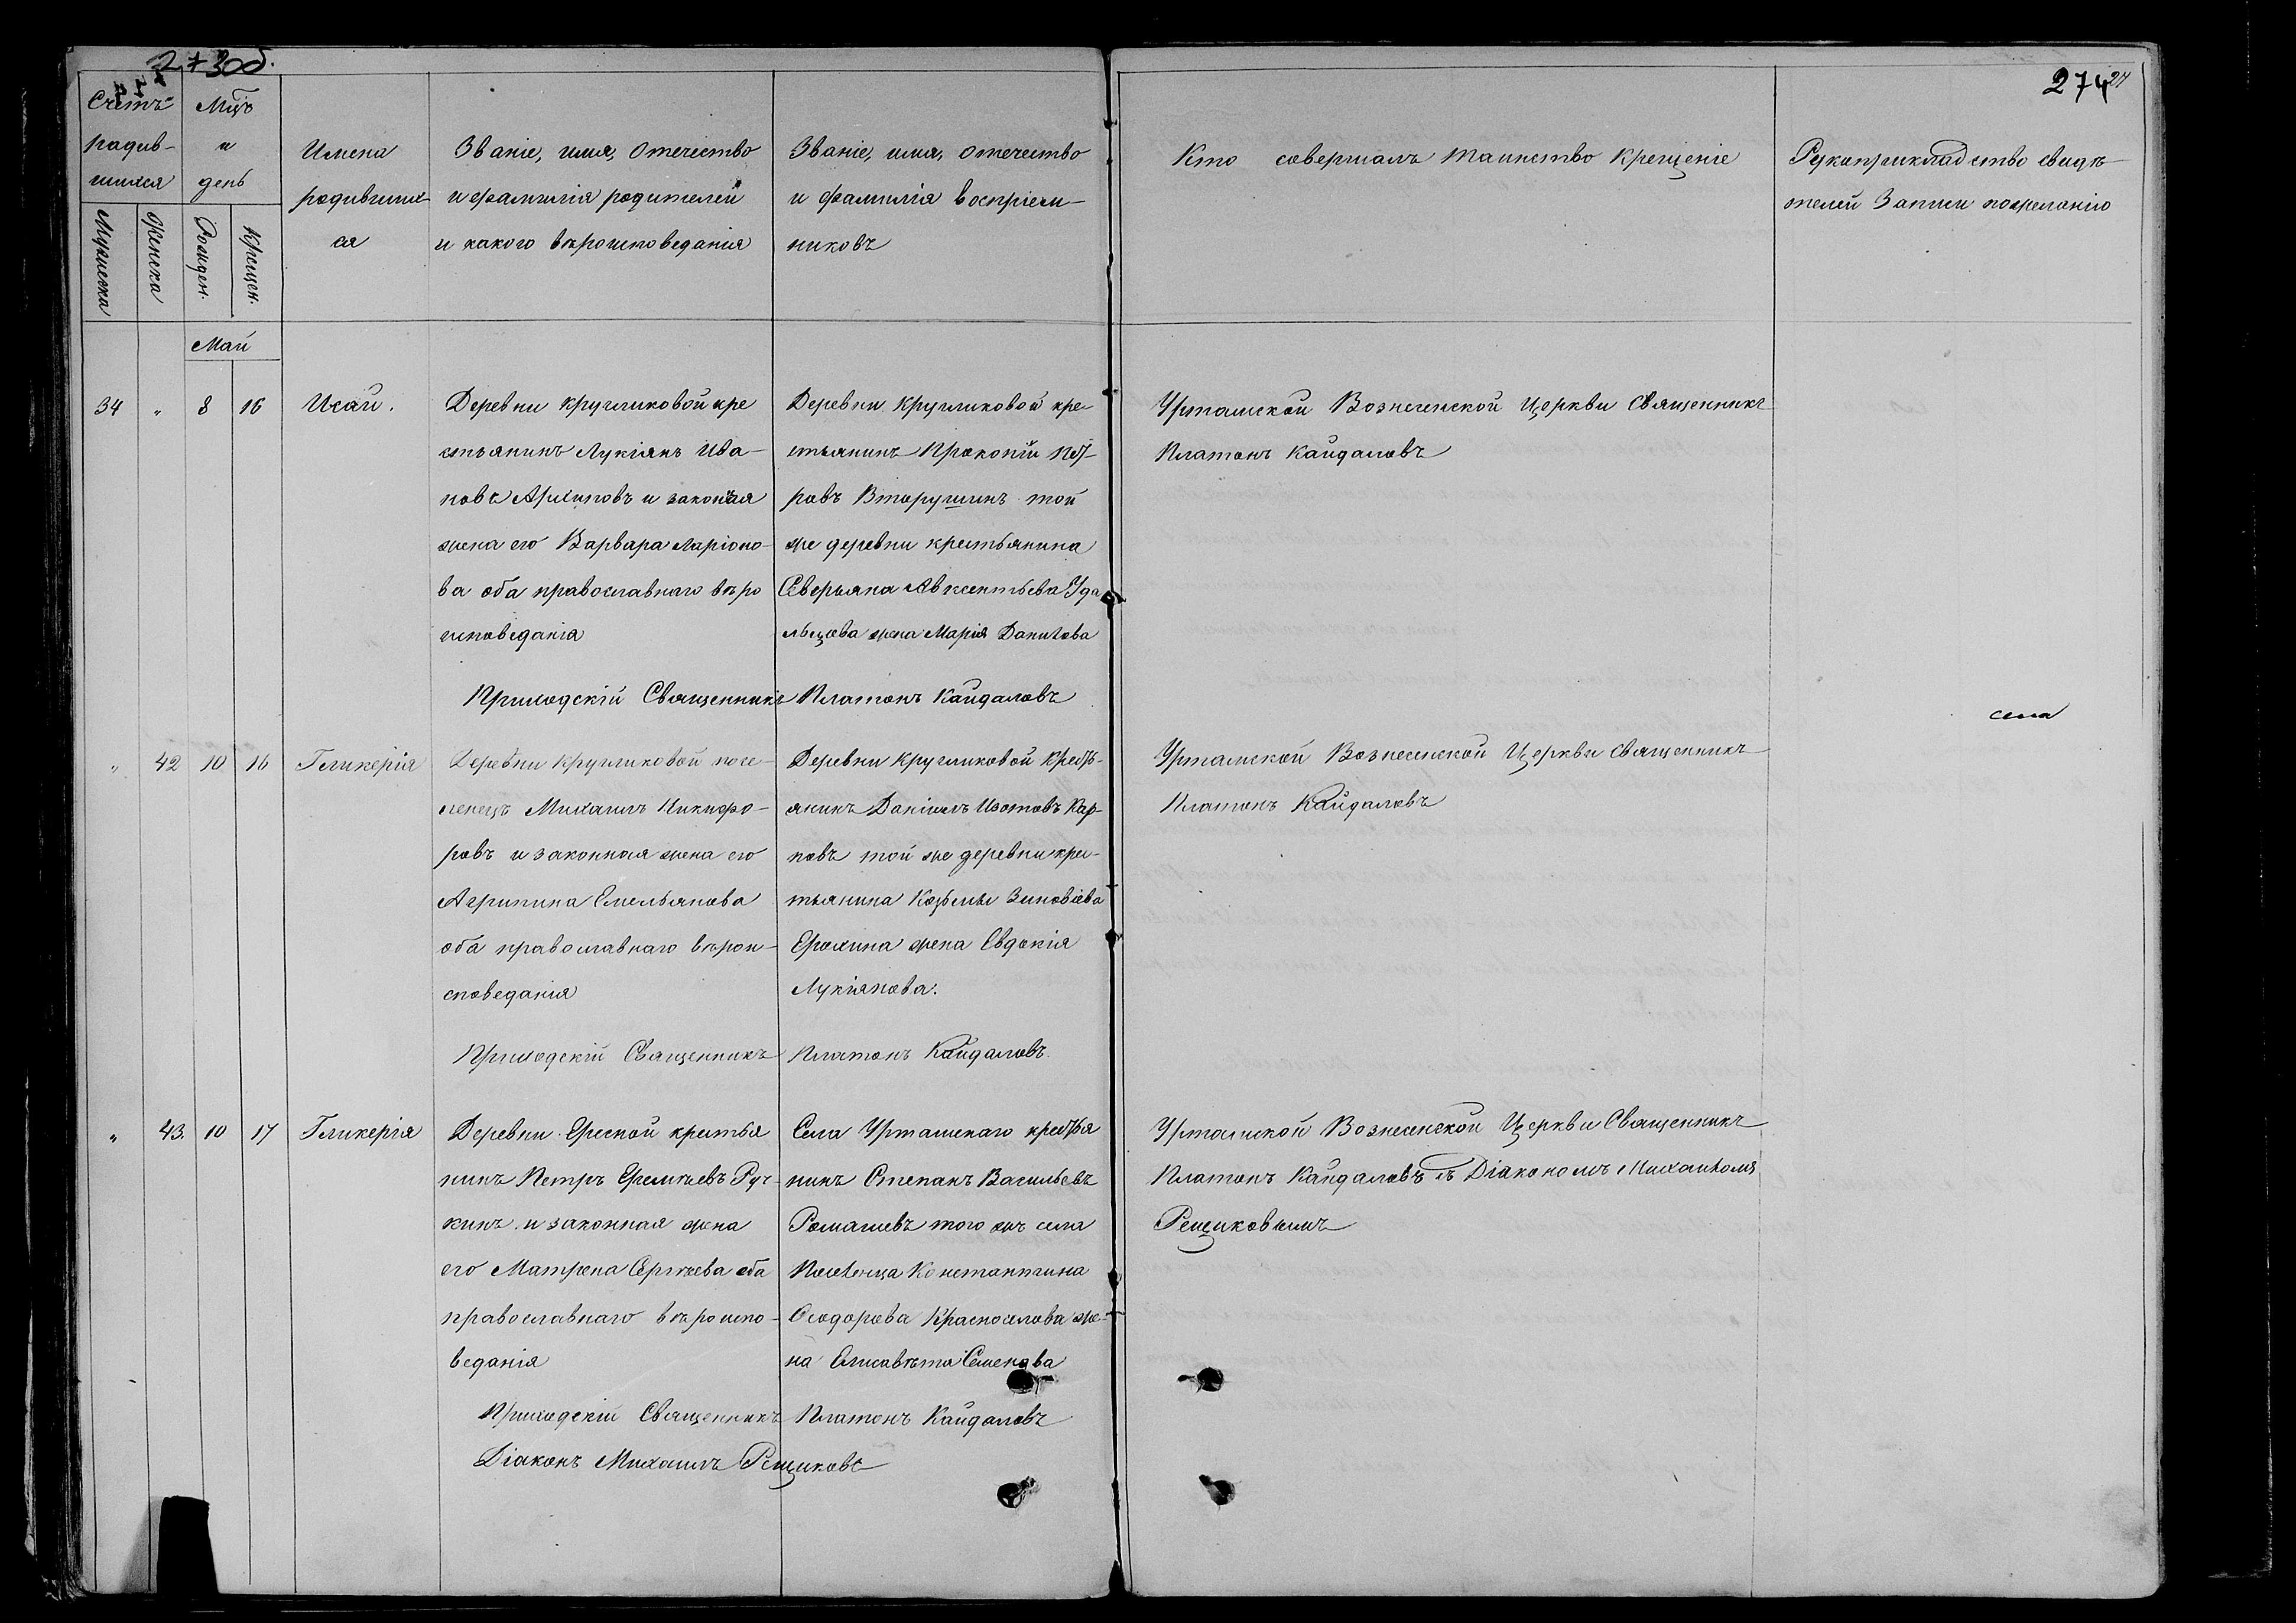 273об.
274
27
Счетъ
родив-
шихся
Мужеска
Женска
Мѣцъ
и
день
Рожден.
Крещен.
Имена
родивших-
ся
Званіе, имя, отечество
и фамилія родителей
и какого вѣроисповеданія
Званіе, имя, отечество
и фамилія воспріем-
никовъ
Кто совершалъ таинство крещеніе
Рукоприкладство свидѣ-
телей Записи по желанію
Май
34 " 8 16 Исай.
Деревни Кругликовой кре
стьянинъ Лукіянъ Ива-
новъ Архиповъ и законная
жена его Варвара Ларіоно-
ва оба православнаго вѣро
исповеданія
Деревни Кругликовой кре-
стьянинъ Прокопій Пет-
ровъ Вторушинъ той
же деревни крестьянина
Северьяна Авксентьева Уда
льцова жена Марія Данилова
Уртамской Вознесенской Церкви Священникъ
Платонъ Кайдаловъ
Приходскій Священникъ Платонъ Кайдаловъ
села
" 42 10 16 Гликерія
Деревни Кругликовой посе-
ленецъ Михаилъ Никифо-
ровъ и законная жена его
Агрипина Емельянова
оба православнаго вѣрои-
споведанія
Деревни Кругликовой Кресть-
янинъ Даніилъ Изотовъ Кар-
повъ той же деревни крес-
тьянина Козьмы Зиновіева
Ерохина жена Евдокія
Лукіянова.
Уртамской Вознесенской Церкви священникъ
Платонъ Кайдаловъ
Приходскій Священникъ Платонъ Кайдаловъ.
" 43. 10 17 Гликерія
Деревни Ересной крестья
нинъ Петръ Еремѣевъ Руч-
кинъ и законная жена
его Матрена Сергѣева оба
православнаго вѣроиспо-
веданія
Села Уртамскаго крестья
нинъ Степанъ Васильевъ
Ромашевъ того жъ села
Поселенца Константина
Ѳеодорова Красноселова же-
на Елисавѣта Семенова
Уртамской Вознесенской Церкви Священникъ
Платонъ Кайдаловъ съ Діакономъ Михаиломъ
Рещиковымъ
Приходскій Священникъ Платонъ Кайдаловъ
Діаконъ Михаилъ Рещиковъ